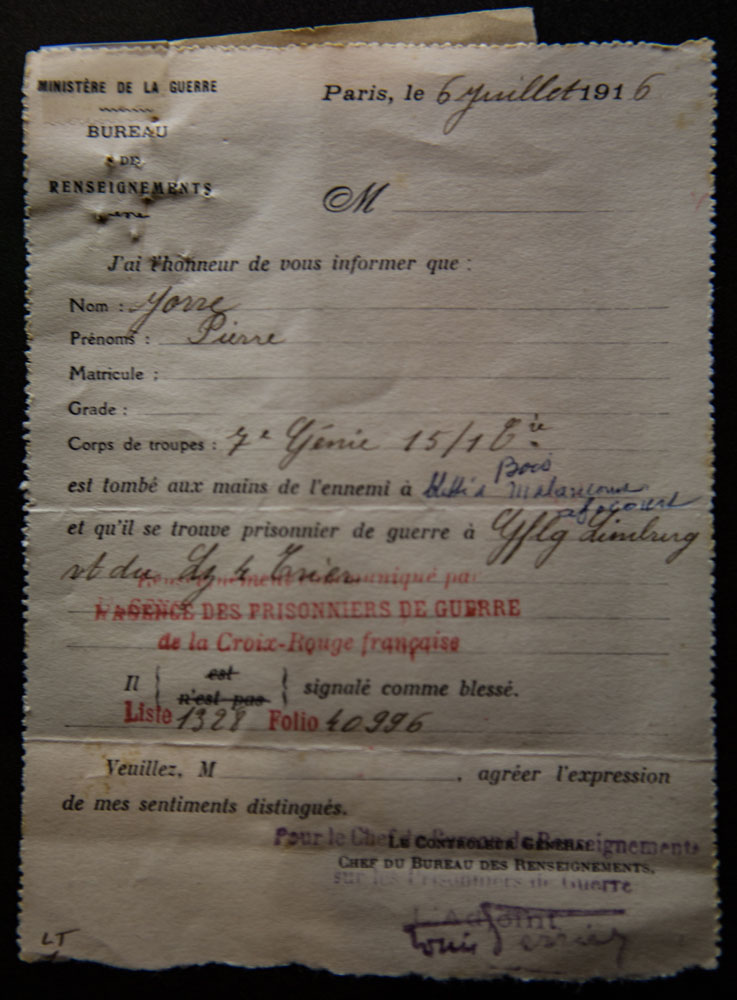 MINISTÈRE DE LA GUERRE
BUREAU
DE
RENSEIGNEMENTS
Paris, le 6 Juillet 1916
M
J'ai l'honneur de vous informer que :
Nom : Yorre
Prénoms : Pierre
Matricule :
Grade :
Corps de troupes : 7e Génie 15/1 Cie
Bois
est tombé aux mains de l'ennemi à Malancourt
et qu'il se trouve prisonnier de guerre à Gflg Limburg
vt du Lg v Trier
Renseignement communiqué par
L'AGENCE DES PRISONNIERS DE GUERRE
de la Croix-Rouge française
Il { est
n'est pas } signalé comme blessé.
Liste 1328 Folio 40996
Veuillez, M , agréer l'expression
de mes sentiments distingués.
Pour le Chef du Bureau de Renseignements
LE CONTRÔLEUR GÉNÉRAL
CHEF DU BUREAU DES RENSEIGNEMENTS,
sur les Prisonniers de Guerre
L'Adjoint
Louis
LT